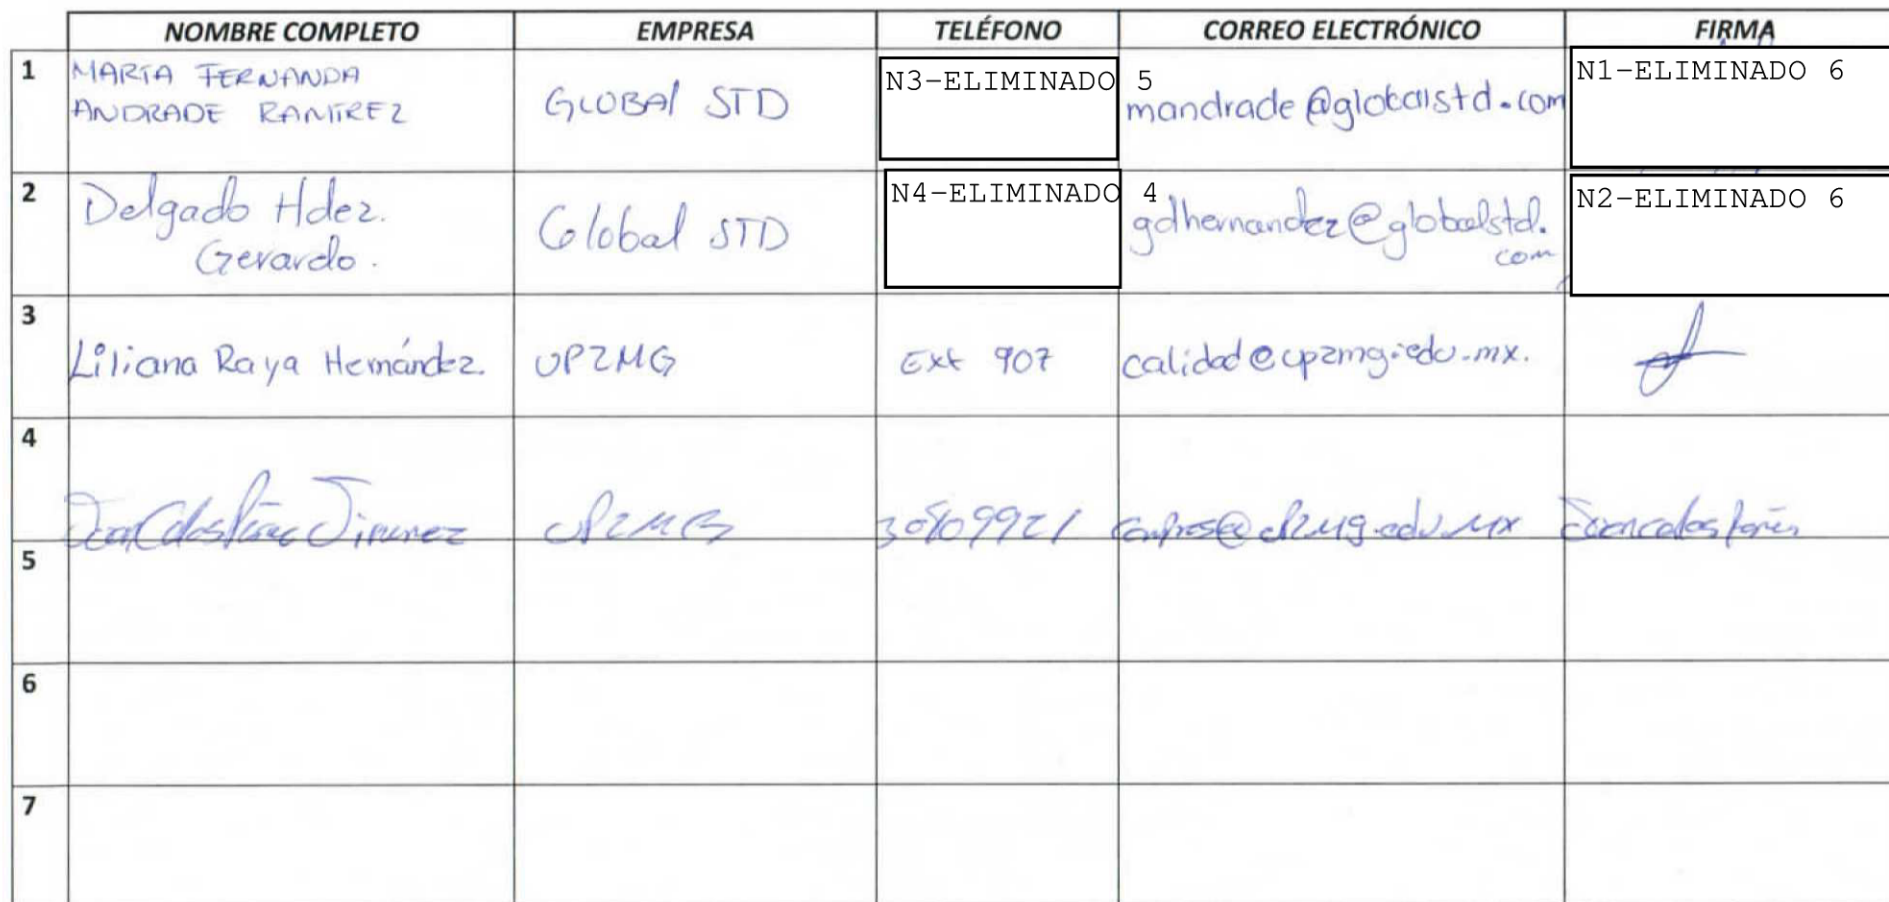 NOMBRE COMPLETO EMPRESA TELÉFONO CORREO ELECTRÓNICO FIRMA
1 MARÍA FERNANDA
ANDRADE RAMÍREZ GLOBAl STD N3-ELIMINADO 5 mandrade@globalstd.com N1-ELIMINADO 6
2 Delgado Hdez.
Gerardo. Global STD N4-ELIMINADO 4 gdhernandez@globalstd.
com N2-ELIMINADO 6
3 Liliana Raya Hernández. UPZMG Ext 907 calidad@upzmg.edu.mx.
4 Jimenez UPZMG @UPZMG.edu.MX
5
6
7